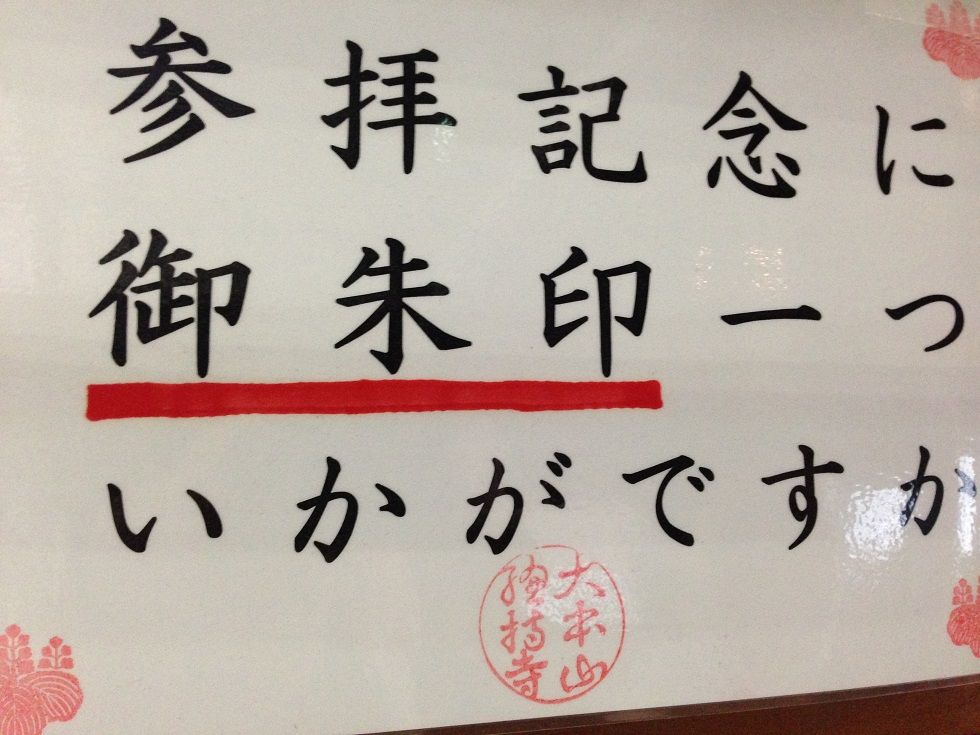 参拝記念に
御朱印一つ
いかがですか
大本山
總持寺